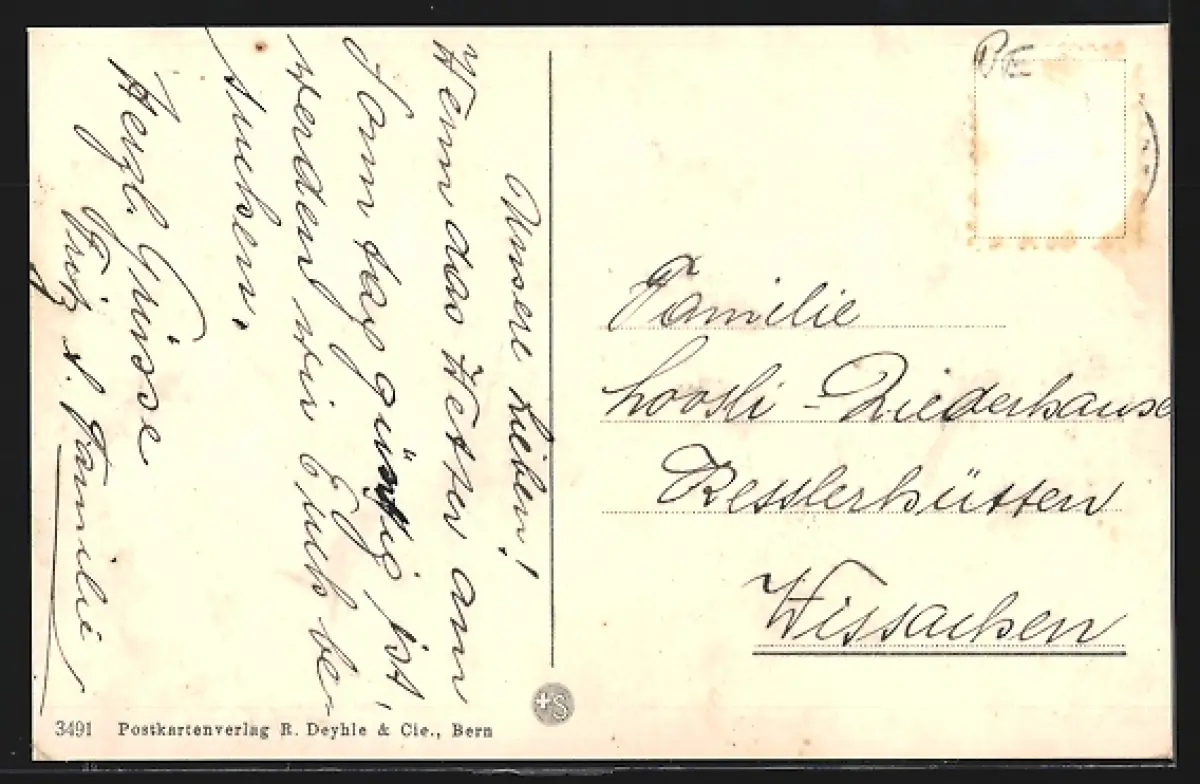 Unsere Lieben!
Wenn das Wetter am
Sonntag günstig ist,
werden wir Euch be-
suchen.
Herzl. Grüsse
Fritz u. Familie
BE
Familie
Loosli - Niederhauser
Kesslerhütten
Wissachen
+S
3491 Postkartenverlag R. Deyhle & Cie., Bern